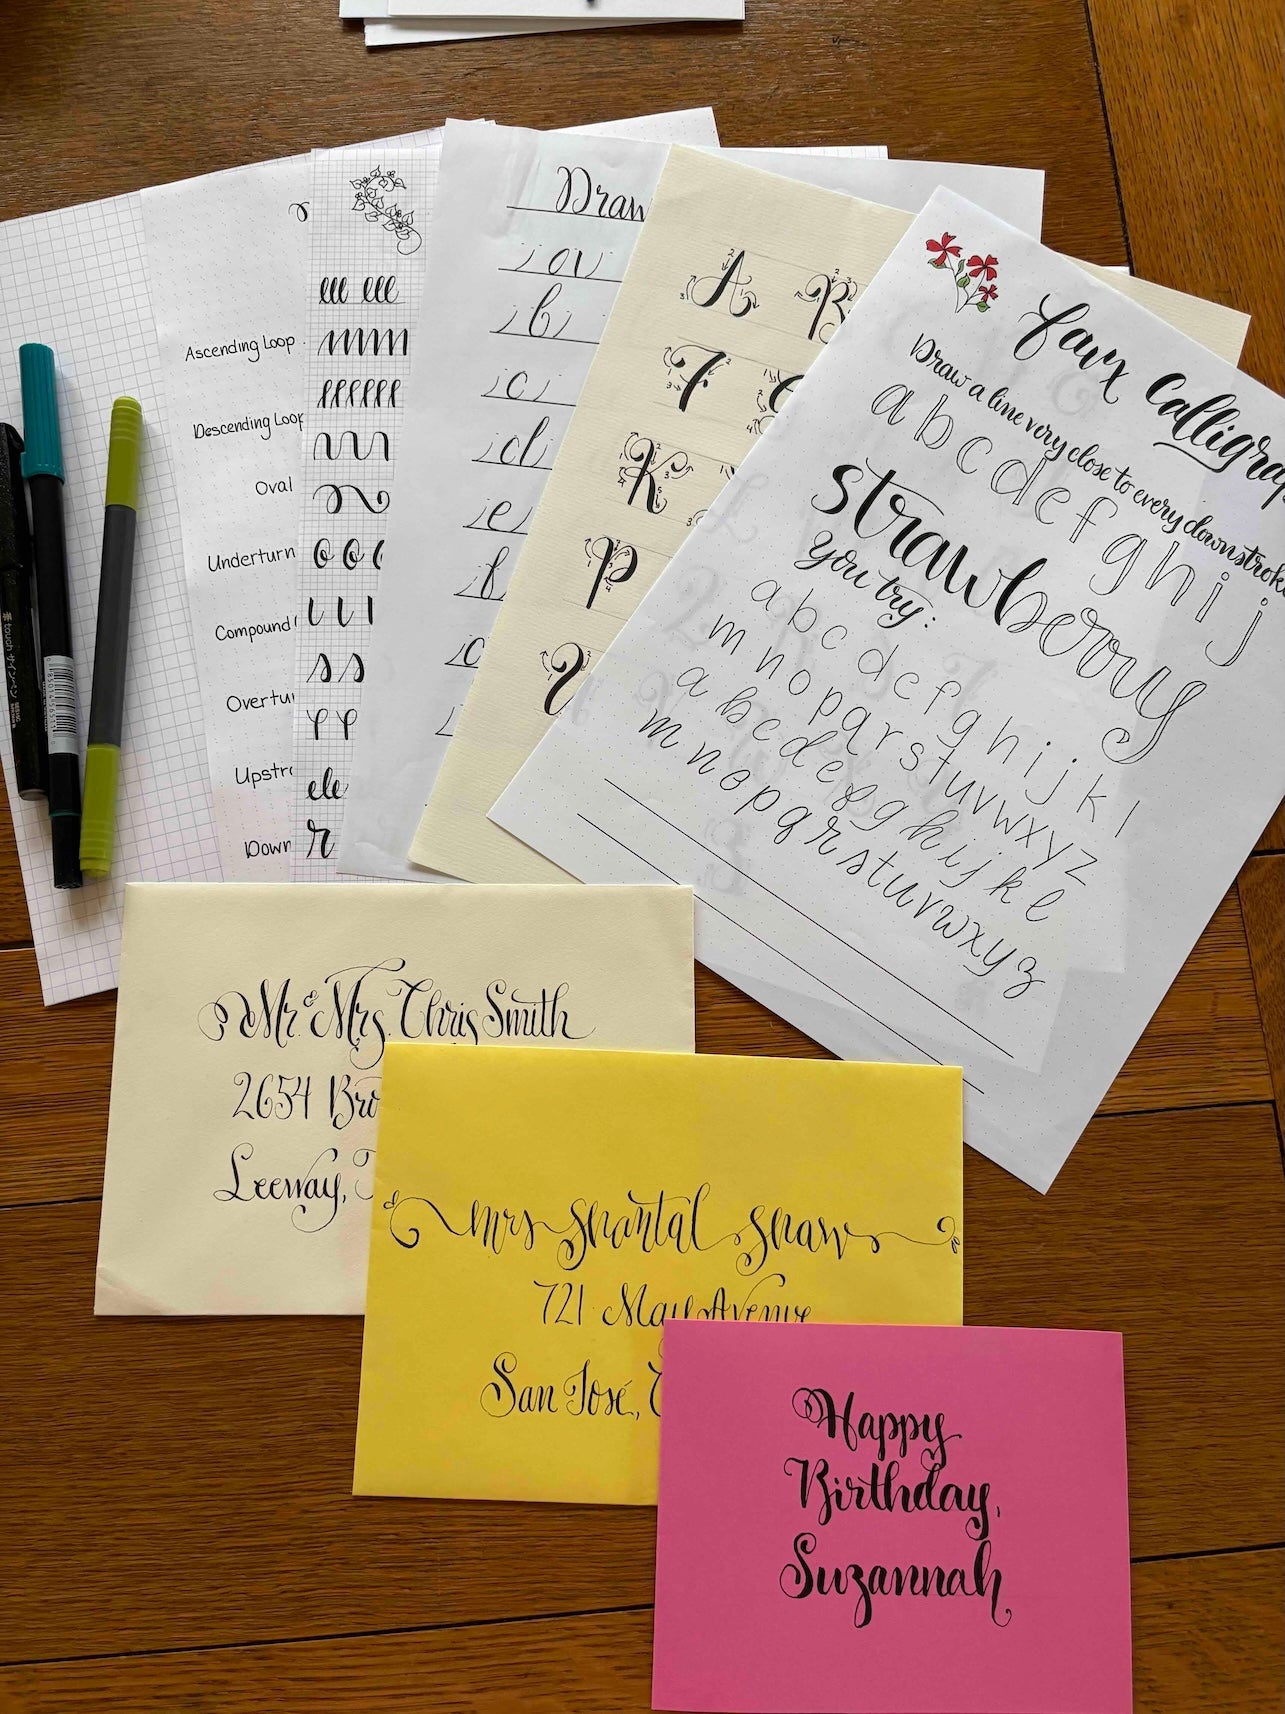 Ascending Loop
Descending Loop
Oval
Underturn
Compound
Overtu
Upstr
Down
Draw
a
b
c
d
e
A B
F
K
P
Faux Calligrap
Draw a line very close to every downstroke
a b c d e f g h i j
strawberry
you try:
a b c d e f g h i j k l
m n o p q r s t u v w x y z
a b c d e f g h i j k l
m n o p q r s t u v w x y z
touch サインペン
Mr. & Mrs. Chris Smith
2654 Bro
Leeway, T
Mrs Shantal Shaw
721 May Avenue
San José, C
Happy
Birthday,
Suzannah